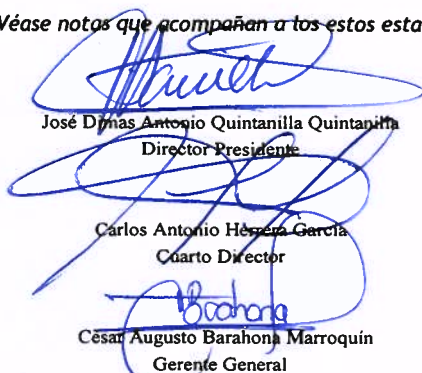 Véase notas que acompañan a los estos esta
José Dimas Antonio Quintanilla Quintanilla
Director Presidente
Carlos Antonio Herrera García
Cuarto Director
Barahona
César Augusto Barahona Marroquín
Gerente General